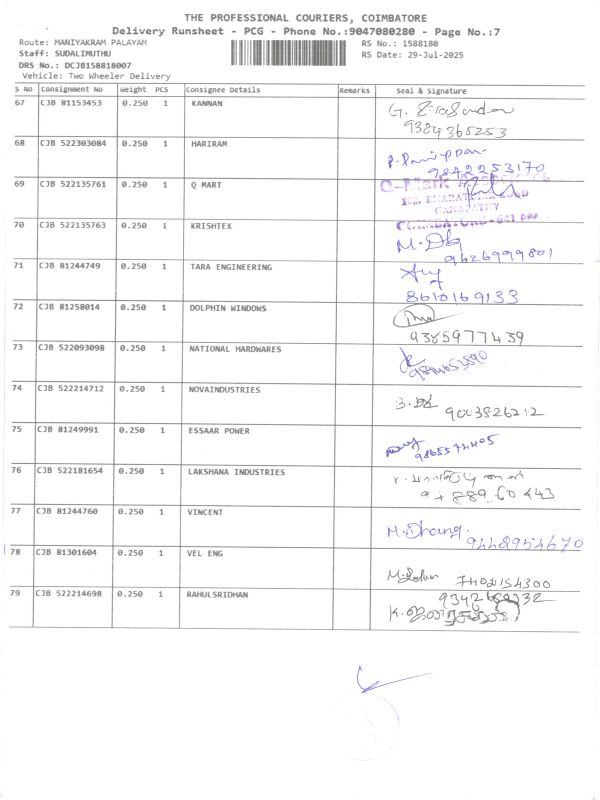 THE PROFESSIONAL COURIERS, COIMBATORE
Delivery Runsheet - PCG - Phone No.:9047080280 - Page No.:7
Route: MANIYAKRAM PALAYAM RS No.: 1588180
Staff: SUDALIMUTHU RS Date: 29-Jul-2025
DRS No.: DCJB158818007
Vehicle: Two Wheeler Delivery
S No Consignment No Weight PCS Consignee Details Remarks Seal & Signature
67 CJB 81153453 0.250 1 KANNAN
9384365253
68 CJB 522303084 0.250 1 HARIRAM
9842253170
69 CJB 522135761 0.250 1 Q MART
70 CJB 522135763 0.250 1 KRISHTEX
9626999801
71 CJB 81244749 0.250 1 TARA ENGINEERING
8610169133
72 CJB 81258014 0.250 1 DOLPHIN WINDOWS
9385977439
73 CJB 522093098 0.250 1 NATIONAL HARDWARES
74 CJB 522214712 0.250 1 NOVAINDUSTRIES
9003826212
75 CJB 81249991 0.250 1 ESSAAR POWER
9865574405
76 CJB 522181654 0.250 1 LAKSHANA INDUSTRIES
77 CJB 81244760 0.250 1 VINCENT
9442954670
78 CJB 81301604 0.250 1 VEL ENG
7402154300
79 CJB 522214698 0.250 1 RAHULSRIDHAN